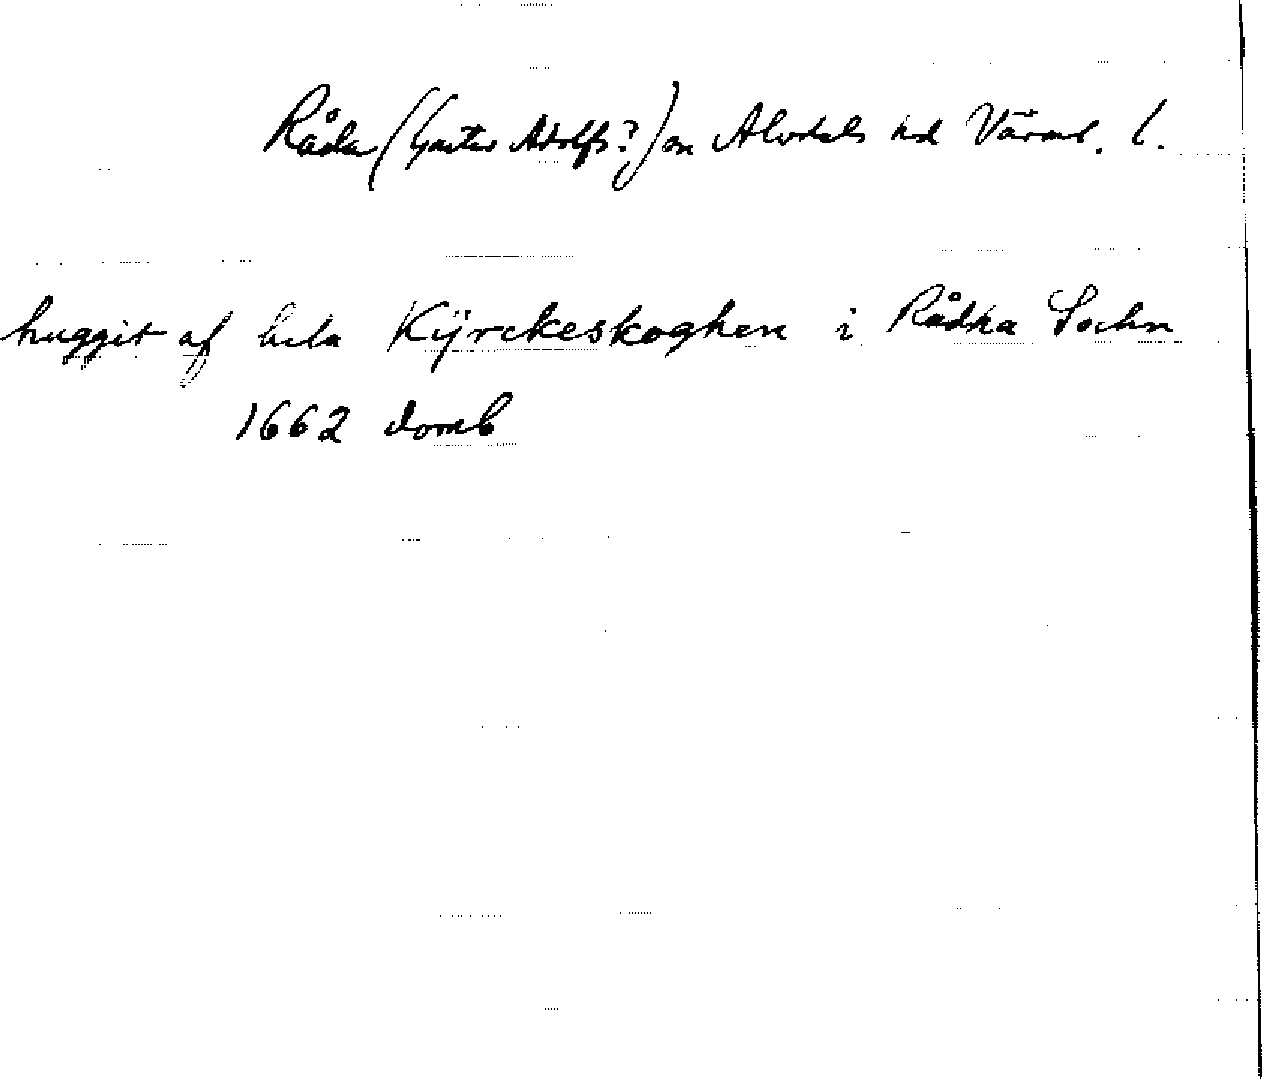 Råda (Gustav Adolfs?) sn Älvdals hd Värml. l.
huggit af hela Kÿrckeskoghen i Rådha Sochn
1662 domb